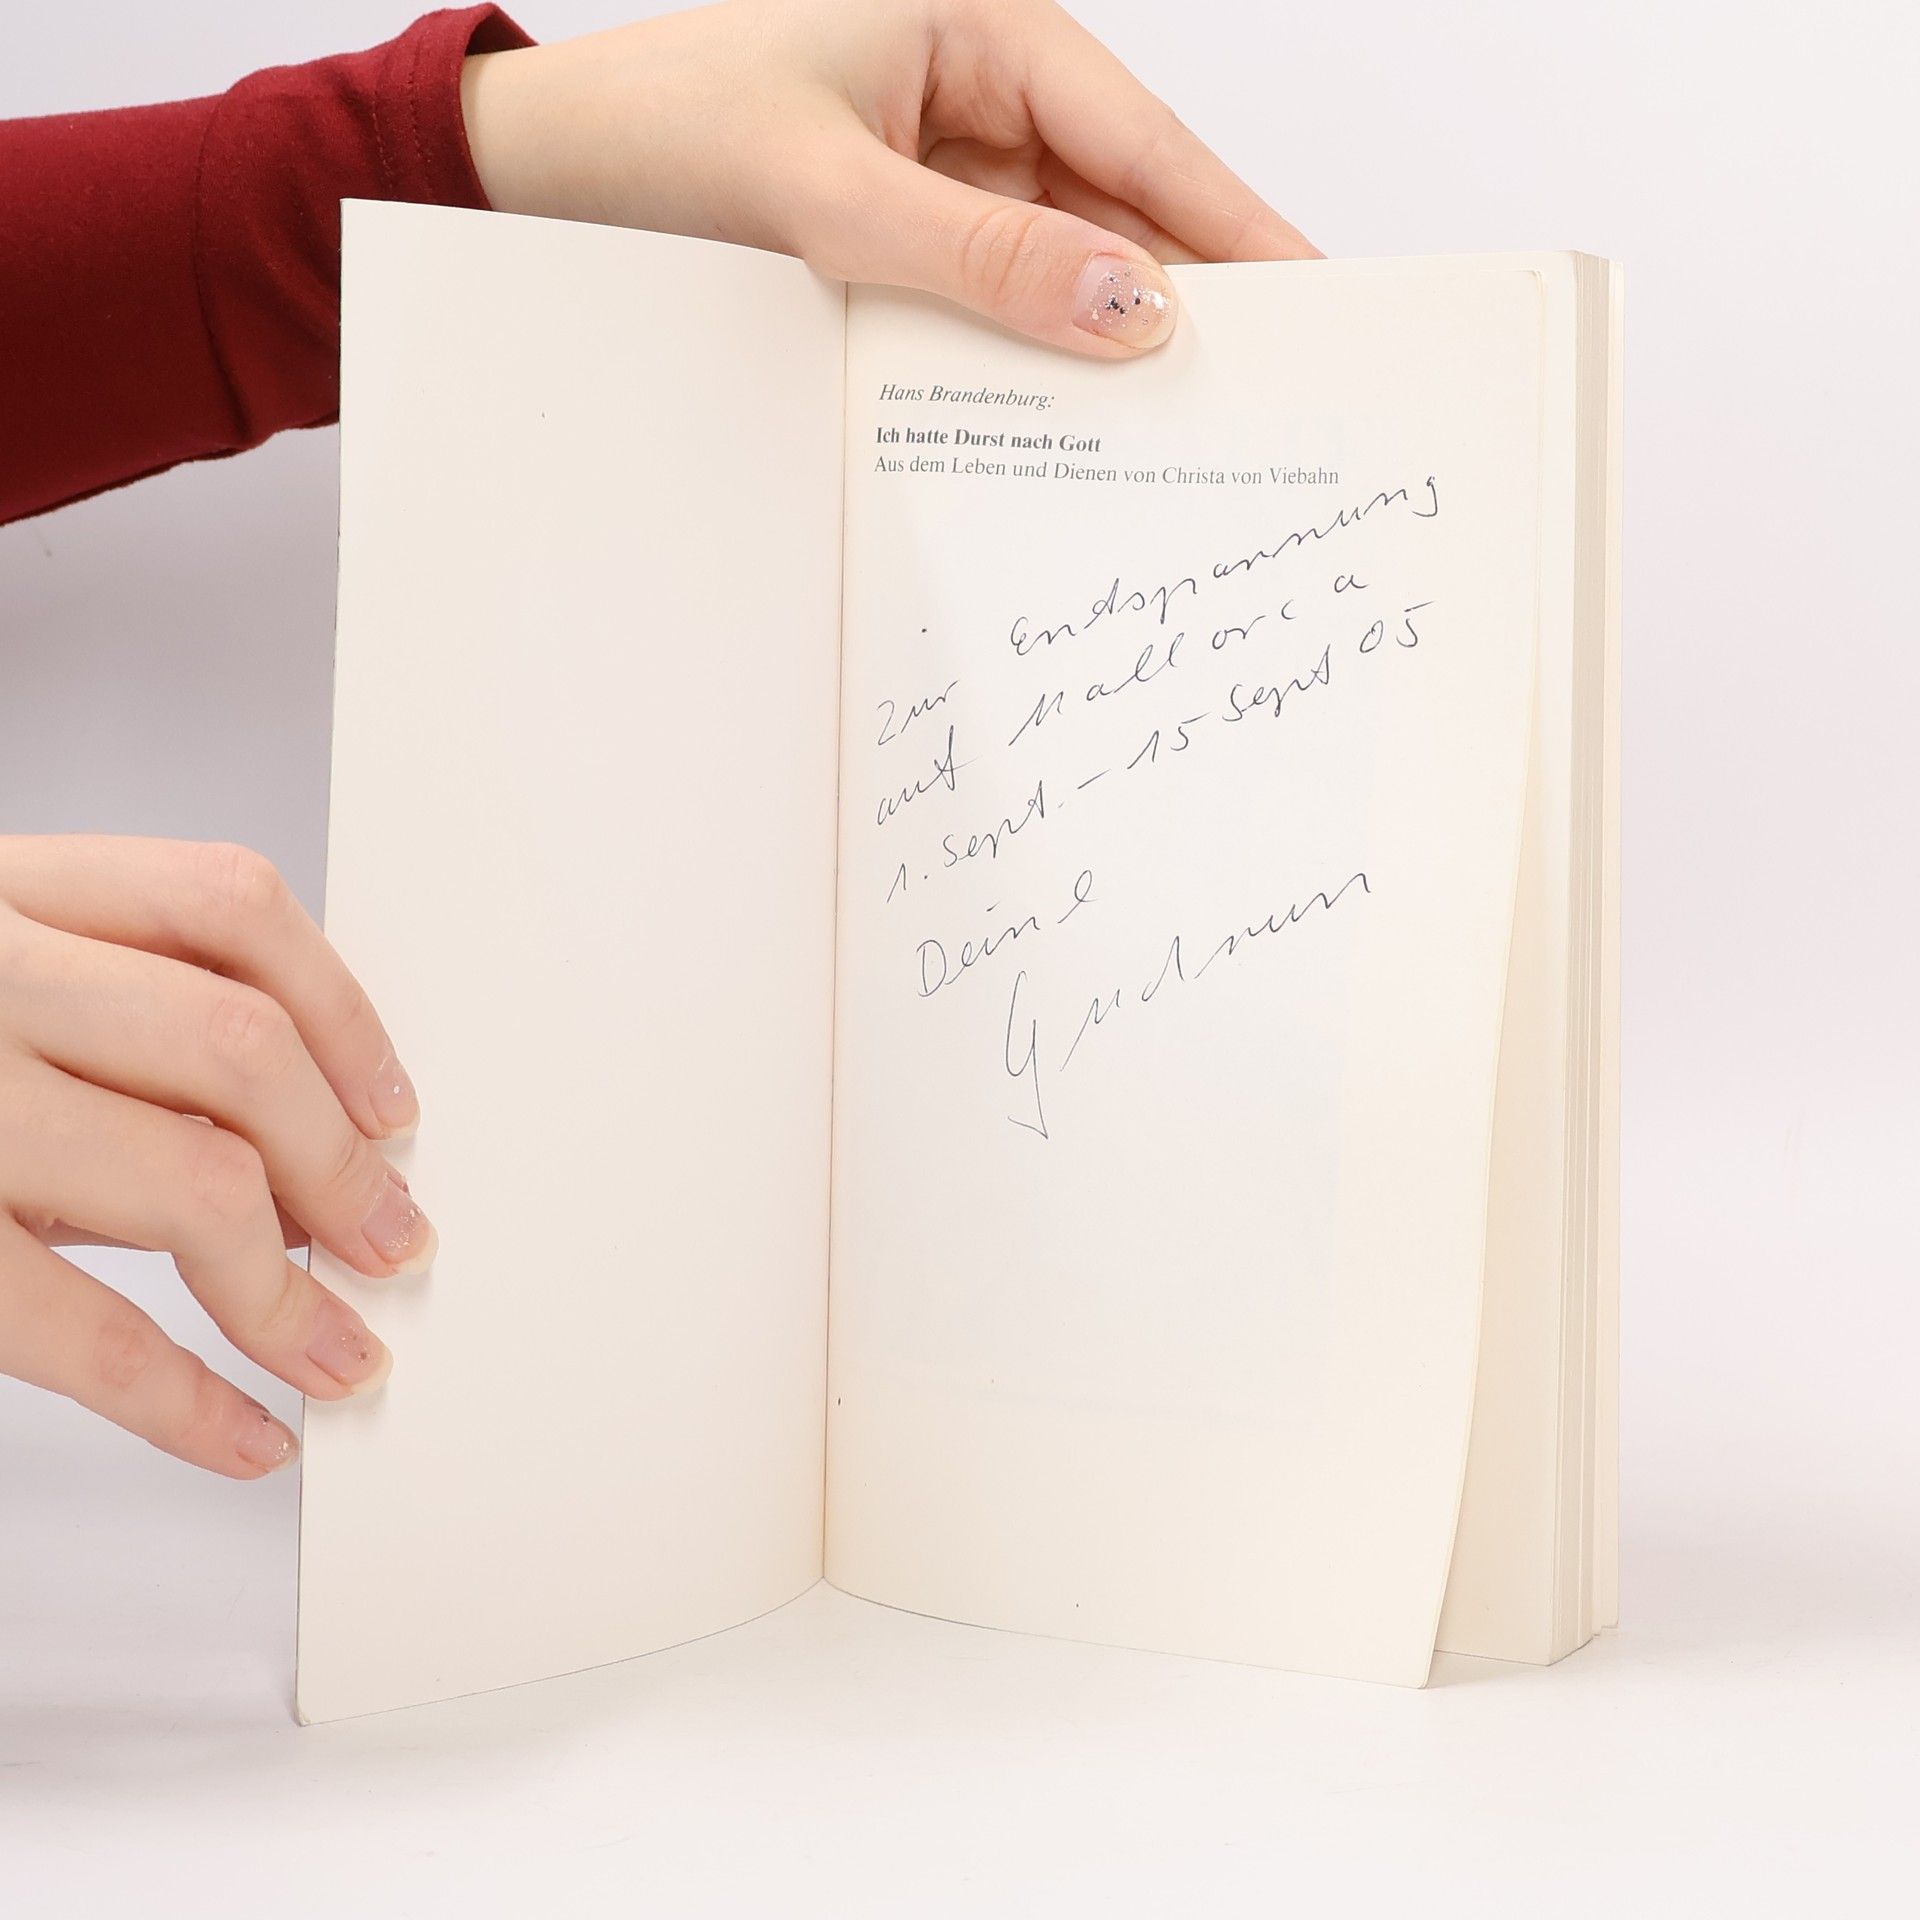 Hans Brandenburg:
Ich hatte Durst nach Gott
Aus dem Leben und Dienen von Christa von Viebahn
Zur Entspannung
auf Mallorca
1. Sept. - 15 Sept 05
Deine
Gudrun